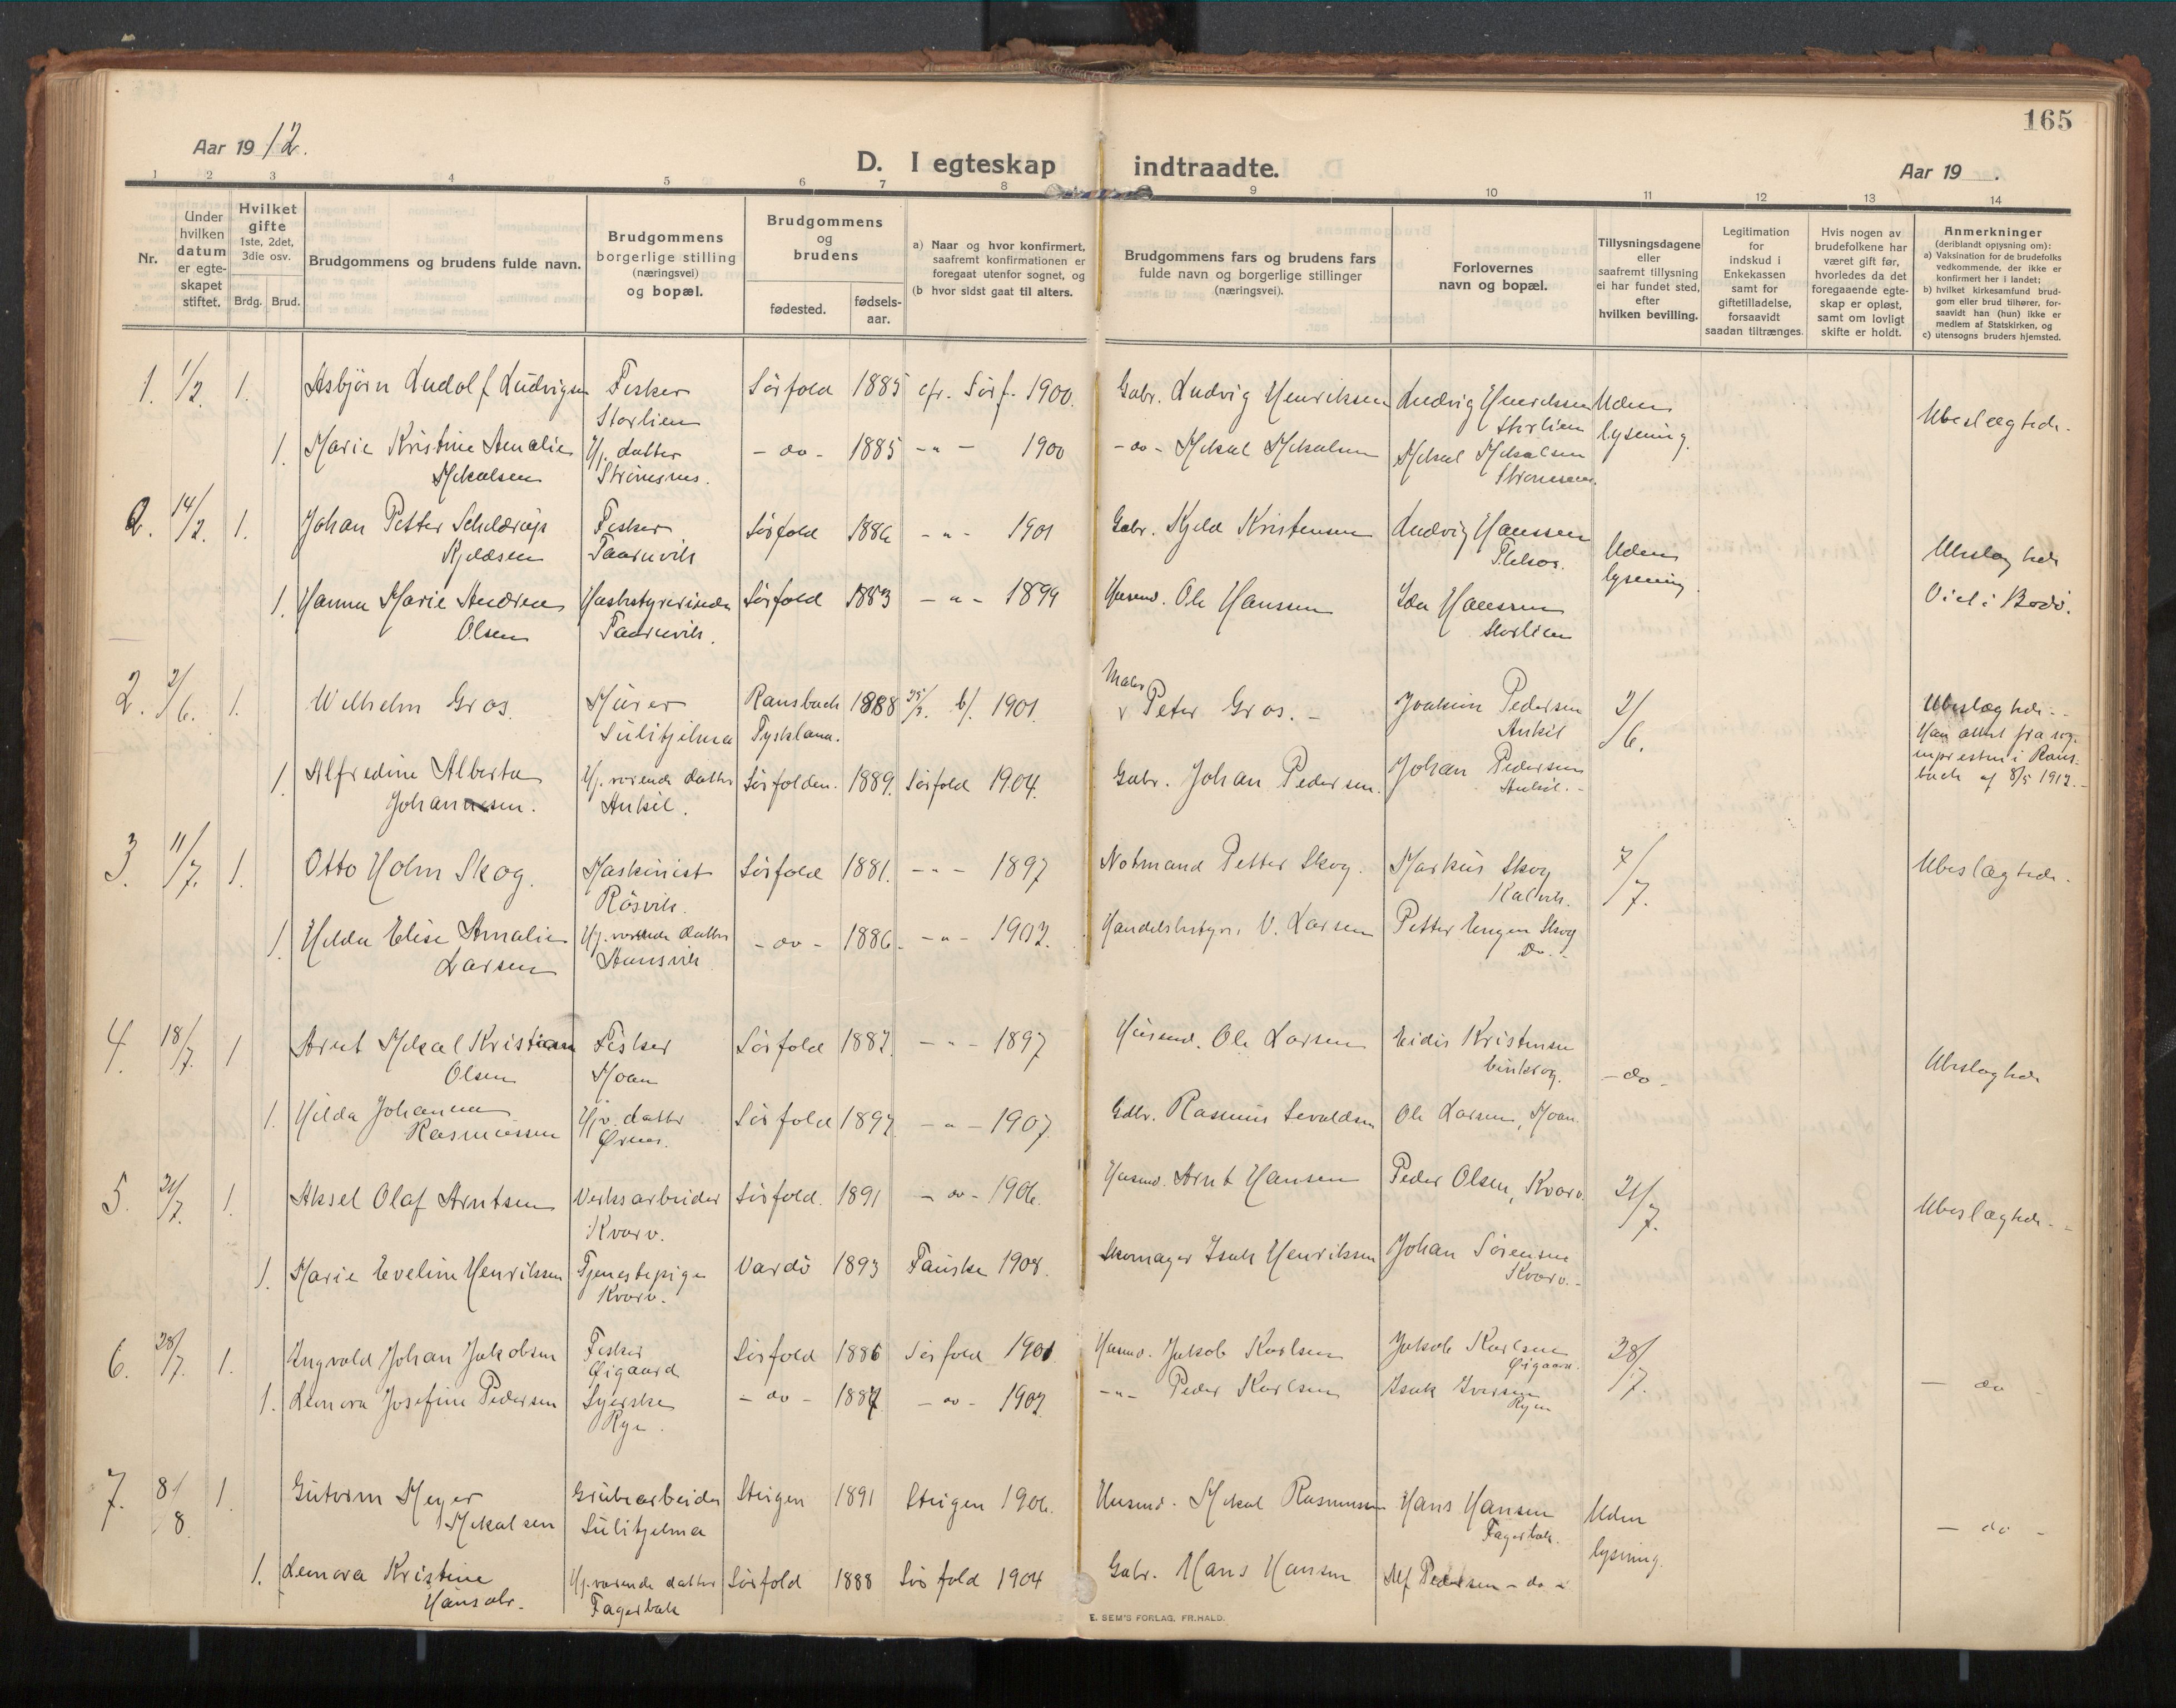 165
Aar 1912.
D. I egteskap indtraadte.
Aar 19 .
1 2 3 4 5 6 7 8 9 10 11 12 13 14
Nr.
Under hvilken datum er egte-skapet stiftet.
Hvilket gifte 1ste, 2det, 3die osv.
Brdg. Brud.
Brudgommens og brudens fulde navn.
Brudgommens borgerlige stilling (næringsvei) og bopæl.
Brudgommens og brudens
fødested.
fødsels-aar.
a) Naar og hvor konfirmert, saafremt konfirmationen er foregaat utenfor sognet, og
(b hvor sidst gaat til alters.
Brudgommens fars og brudens fars fulde navn og borgerlige stillinger (næringsvei).
Forlovernes navn og bopæl.
Tillysningsdagene eller saafremt tillysning ei har fundet sted, efter hvilken bevilling.
Legitimation for indskud i Enkekassen samt for giftetilladelse, forsaavidt saadan tiltrænges.
Hvis nogen av brudefolkene har været gift før, hvorledes da det foregaaende egte-skap er opløst, samt om lovligt skifte er holdt.
Anmerkninger
(deriblandt opjysning om):
a) Vaksination for de brudefolks vedkommende, der ikke er konfirmert her i landet;
b) hvilket kirkesamfund brud-gom eller brud tilhører, for-saavidt han (hun) ikke er medlem af Statskirken, og
c) utensogns bruders hjemsted.
1. 1/2. 1. Asbjørn Ludolf Ludvigsen Fisker Sørfold 1885 cfr. Sørf. 1900. Gabr. Ludvig Henriksen Ludvig Henriksen Uden Ubeslægtede.
Storlien Storlien lysning.
1. Marie Kristine Amalie Hj. datter - do - 1885 - " - 1900 - do - Mikal Mikalsen Mikal Mikalsen
Mikalsen Strömsnes.
2. 14/2. 1. Johan Petter Schelderup Fisker Sörfold 1886 - " - 1901 Gabr. Kjeld Kristensen Ludvig Hanssen Uden Ubeslægtede
Kjeldsen Taarnvik lysning.
1. Hanna Marie Andrea Husbstyrerinde Sörfold 1883 - " - 1899 Husmd. Ole Hanssen Hanssen Viet i Bodö.
Olsen Taarnvik. Storlien
2. 2/6. 1. Wilhelm Gros. Mürer Ransbach 1888 1901. Maler Peter Gros. - Joakim Pedersen 2/6. Ubeslægtede. -
Sulitjelma Tyskland. Ankil Han attest fra
1. Alfredine Alberta Hj. værende datter Sörfolden. 1889. Sörfold 1904. Gabr. Johan Pedersen. Johan Pedersen i Rans-
Johannesen. Ankil. Ankil. - bach af 8/5 1912. -
3. 11/7. 1. Otto Holm Skog. Maskinist Sörfold 1881. - " - 1897 Notmand Petter Skog. Markus Skog 7/7. Ubeslægtede.
Rösvik. Kalvik.
1. Hilda Elise Amalie Hj. værende datter - do - 1886. - " - 1902. Handelsbstyr. V. Larsen Petter Skog
Larsen Do. -
4. 18/7. 1 Arnt Mikal Kristian Fisker Sörfold 1882. - " - 1897 Husmd. Ole Larsen Eidis Kristensen - do - Ubeslægtede
Olsen Moen
1. Hilda Johanna Hjv. datter Sörfold 1892 - " - 1907. Gdbr. Rasmus Sevaldsen Ole Larsen, Moen.
Rasmussen Ørnes.
5. 21/7. 1. Aksel Olaf Arntsen Verksarbeider Sörfold. 1891 - do - 1906. Husmd. Arnt Hansen Peder Olsen, Kvarv. 21/7. Ubeslægtede. -
Kvarv.
1. Marie Eveline Henriksen Tjenestepige Vardö 1893 Fauske 1908. Skomager Isak Henriksen Johan Sörensen
Kvarv. Kvarv. -
6. 28/7. 1. Ingvald Johan Jakobsen Fisker Sörfold 1886 Sörfold 1901 Husmd. Jakob Karlsen Jakob Karlsen 28/7. - do
Øigaard Øigaard.
1. Lenora Josefine Pedersen Syerske - do - 1887 - do - 1902 - " - Peder Karlsen Isak Iversen
Ryn.
7. 8/8 1. Gutorm Meyer Grubearbeider Steigen 1891 Steigen 1906. Husmd. Mikal Rasmussen Hans Hansen Uden - do -
Mikalsen Sulitjelma Fagerbak. lysning.
1. Lenora Kristine Hj. værende datter Sörfold 1888 Sörfold 1904 Gabr. Hans Hansen Alf Pedersen - do -
Hansdr. Fagerbak
E. SEM'S FORLAG, FR.HALD.